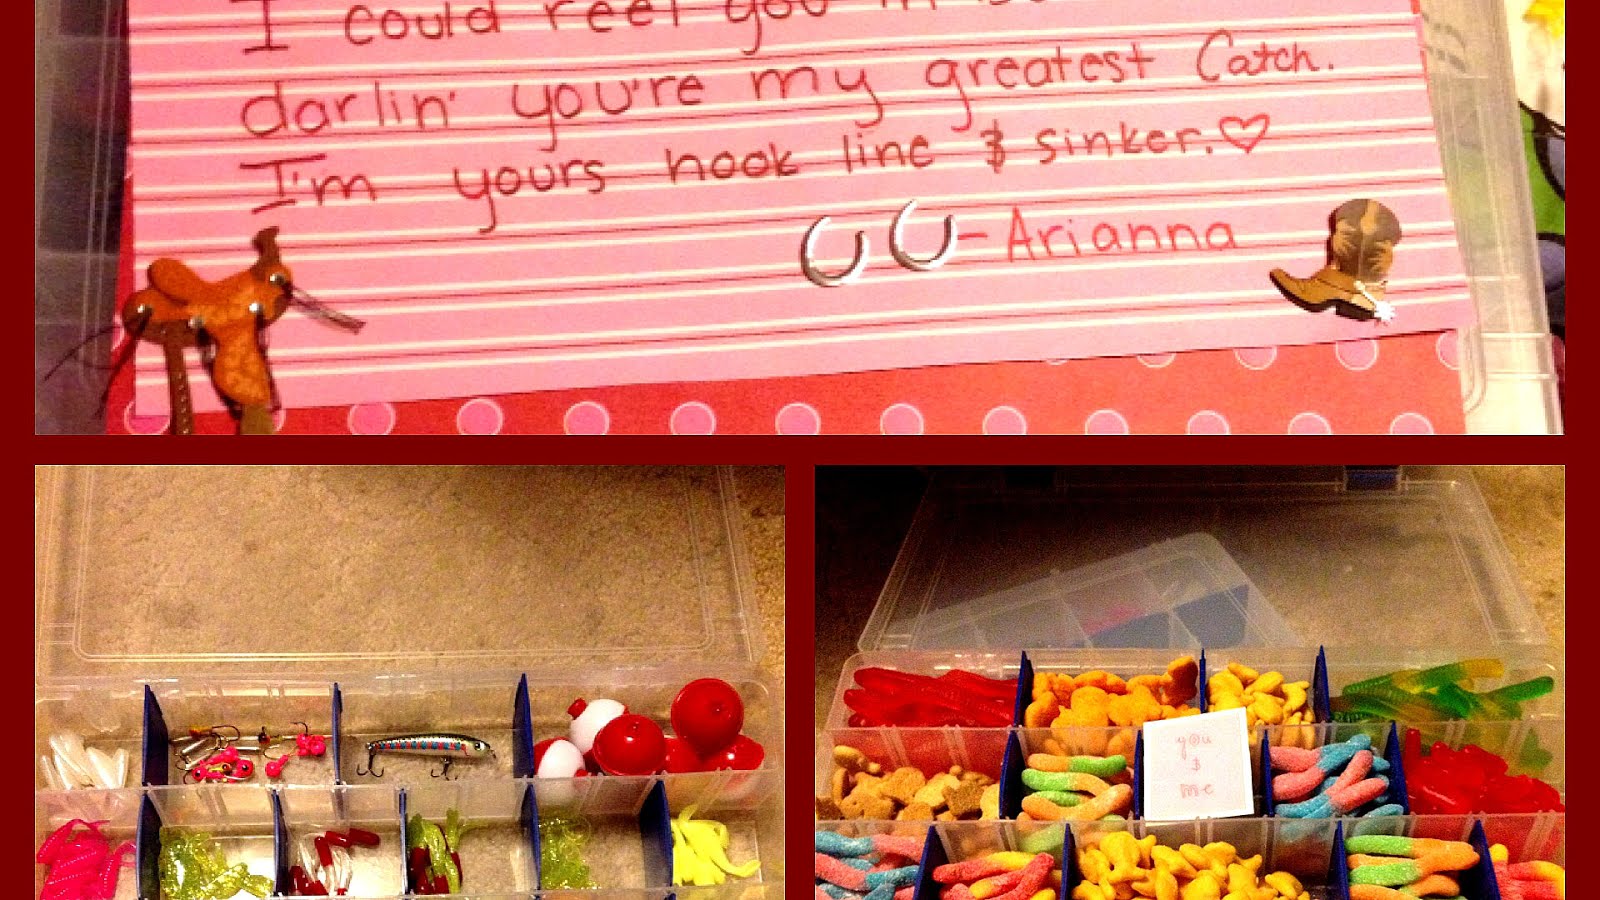 I could reel you in
darlin' you're my greatest Catch.
I'm yours hook line & sinker.♡
-Arianna
you
&
me